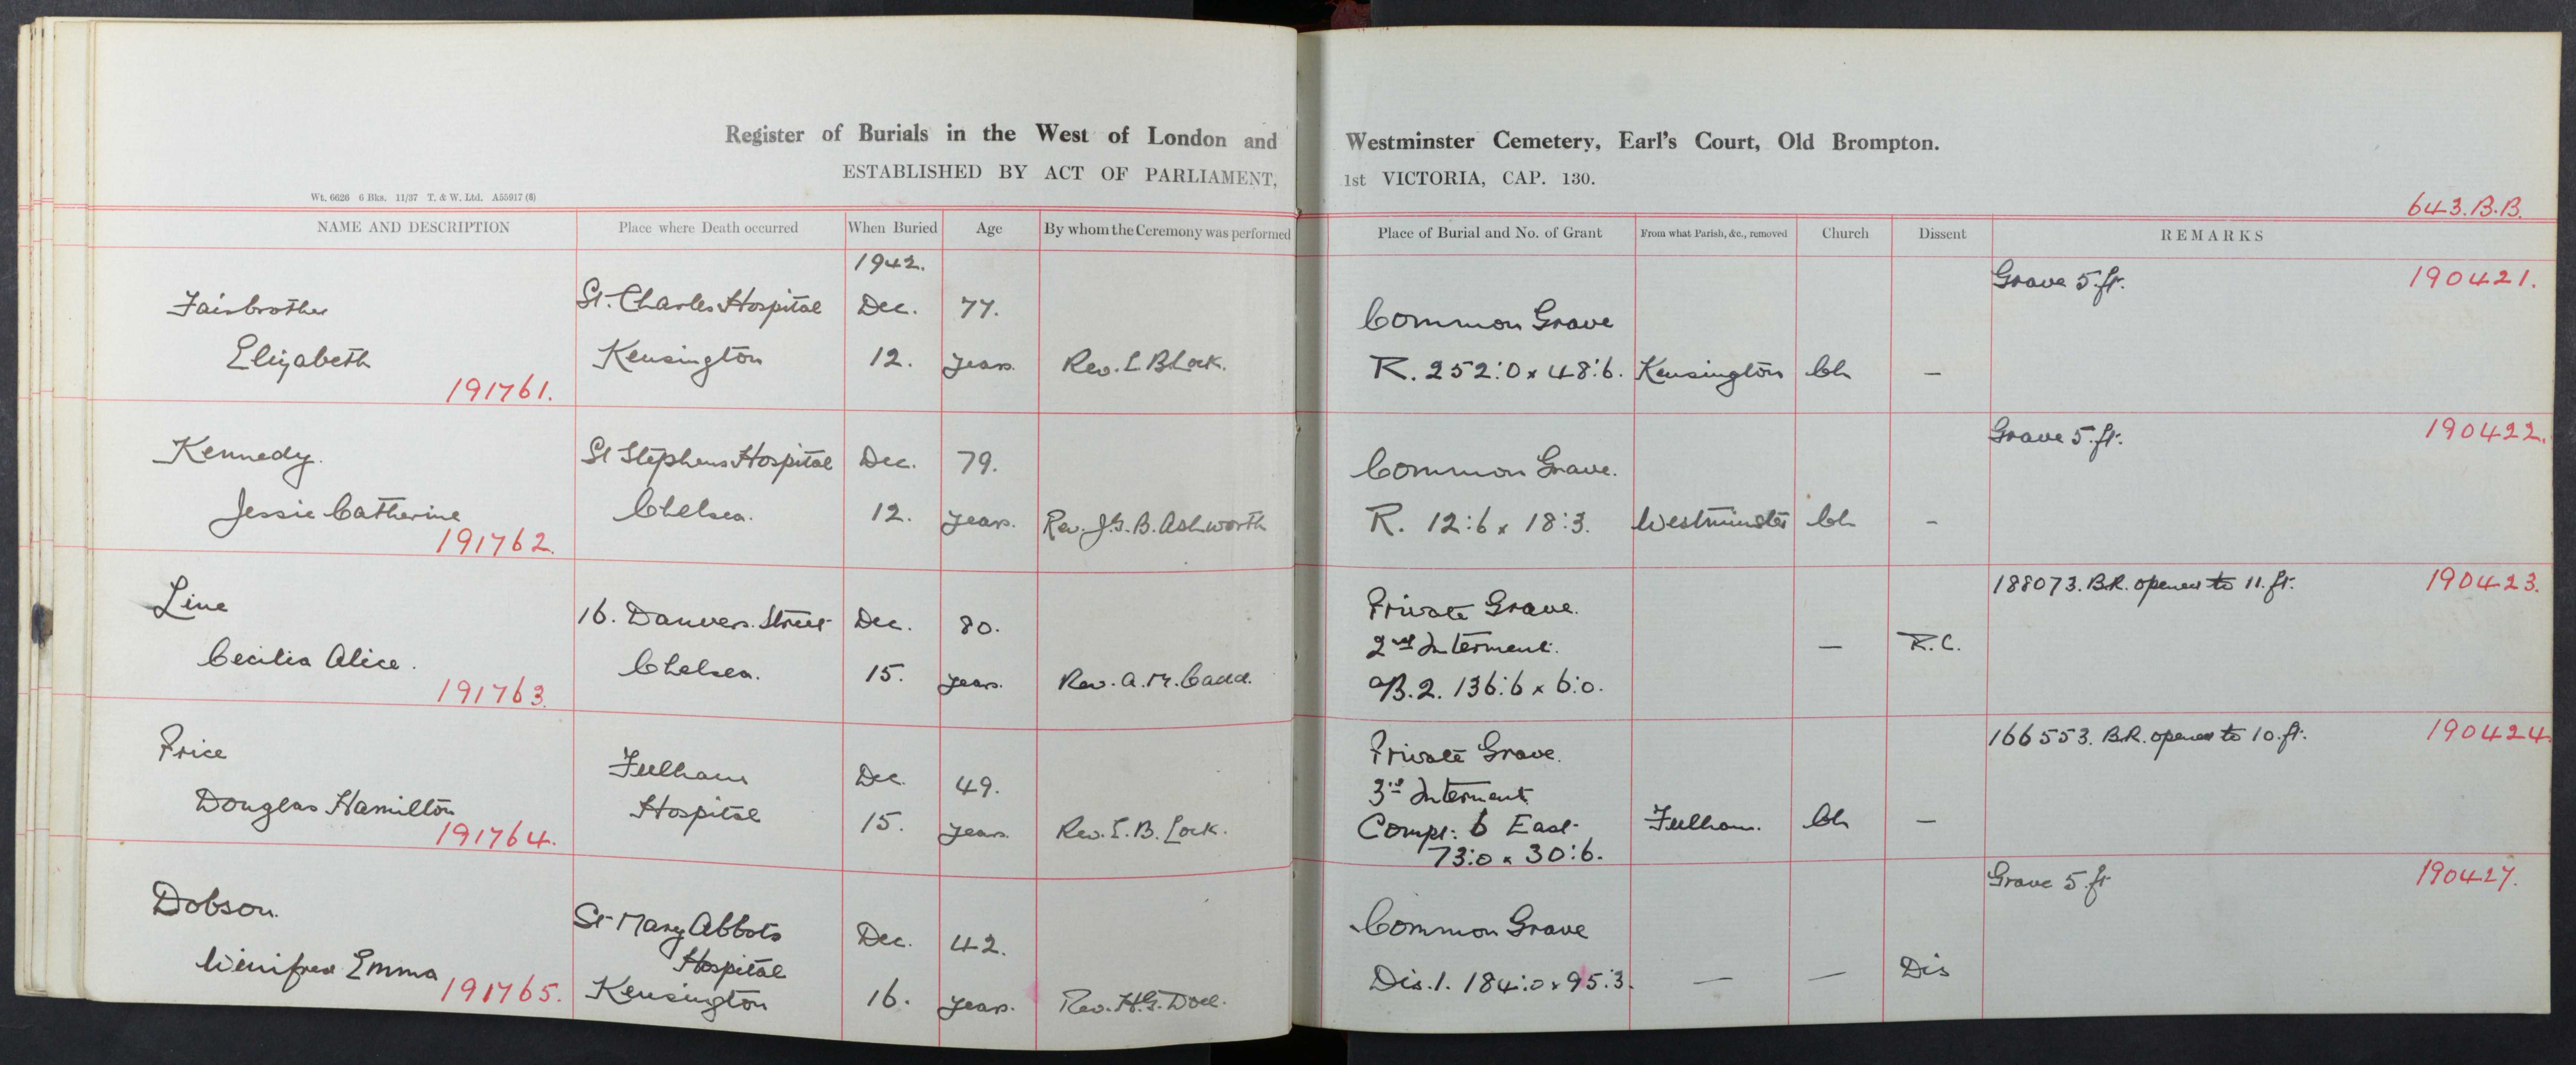 Register of Burials in the West of London and Westminster Cemetery, Earl's Court, Old Brompton.
ESTABLISHED BY ACT OF PARLIAMENT, 1st VICTORIA, CAP. 130.
Wt. 6626 6 Bks. 11/37 T. & W. Ltd. A55917 (8)
643.B.B.
NAME AND DESCRIPTION Place where Death occurred When Buried Age By whom the Ceremony was performed Place of Burial and No. of Grant From what Parish, &c., removed Church Dissent REMARKS
1942.
Grave 5.ft. 190421.
Fairbrother St. Charles Hospital Dec. 77. Common Grave
Elizabeth Kensington 12. years. Rev. E.B. Lock. R. 252:0 x 48:6. Kensington Ch —
191761.
Grave 5.ft. 190422.
Kennedy. St Stephens Hospital Dec. 79. Common Grave.
Jessie Catherine Chelsea. 12. years. Rev. J.G.B. Ashworth R. 12:6 x 18:3. Westminster Ch -
191762.
188073. B.R. opened to 11.ft. 190423.
Line 16. Danvers. Street Dec. 80. Private Grave.
2nd Interment. — R.C.
Cecilia Alice. Chelsea. 15. years. Rev. A. B.2. 136:6 x 6:0.
191763.
166553. B.R. opened to 10.ft. 190424
Price Fulham Dec. 49. Private Grave.
3rd Interment
Douglas Hamilton Hospital 15. years. Rev. E.B. Lock. Compt: 6 East Fulham. Ch —
191764. 73:0 x 30:6.
Grave 5.ft 190427.
Dobson. St Mary Abbots Dec. 42. Common Grave
Winifred Emma Hospital Dis
191765. Kensington 16. years. Rev. H.G. Dis.1. 184:0 x 95:3. — —